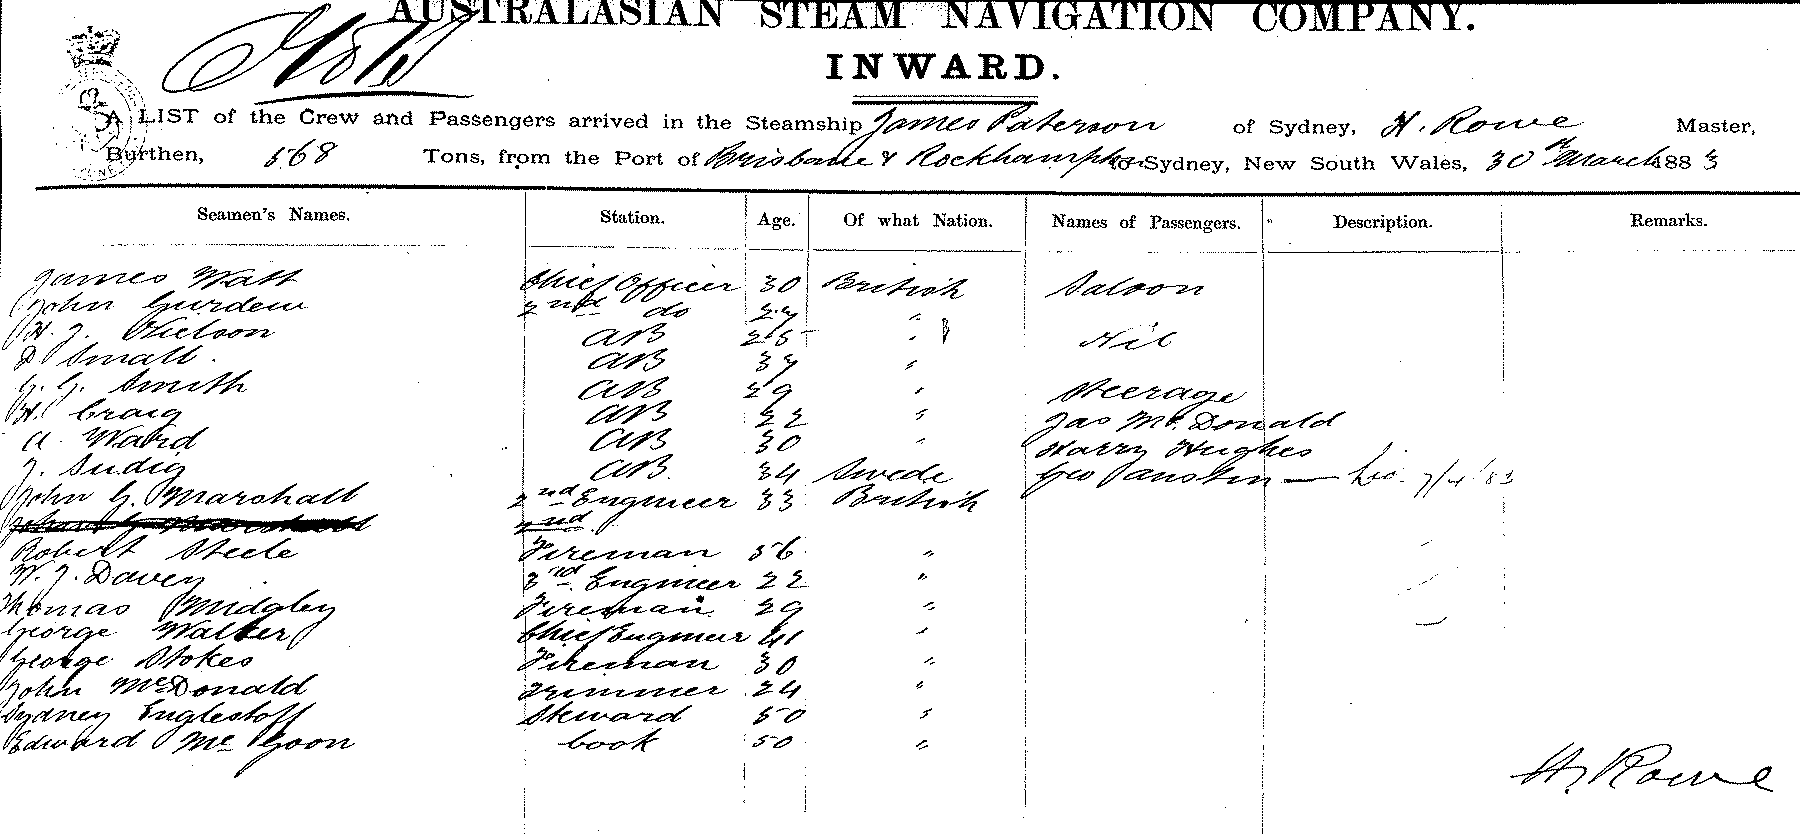 AUSTRALASIAN STEAM NAVIGATION COMPANY.
INWARD.
A LIST of the Crew and Passengers arrived in the Steamship James Paterson of Sydney, H. Rowe Master,
Burthen, 568 Tons, from the Port of Brisbane & Rockhampton to Sydney, New South Wales, 30th March 1883
Seamen's Names. Station. Age. Of what Nation. Names of Passengers. Description. Remarks.
James Watt Chief Officer 30 British Saloon
John Gurdew 2nd do 27 "
H. J. Nielson AB 25 " Nil
D Small. AB 37 "
G. G. Smith AB 29 " Steerage
H. Craig AB 22 " Jas McDonald
A. Ward AB 30 " Harry Hughes
J. AB. 34 Swede Geo — 7/4/83
John G. Marshall 2nd Engineer 33 British
John G. Marshall 2nd
Robert Steele Fireman 56 "
W. J. Davey 3rd Engineer 22 "
Thomas Midgley Fireman 29 "
George Walker Chief Engineer 41 "
George Stokes Fireman 30 "
John McDonald Trimmer 24 "
Sydney Englestoff Steward 50 "
Edward McGoon Cook 50 "
H. Rowe